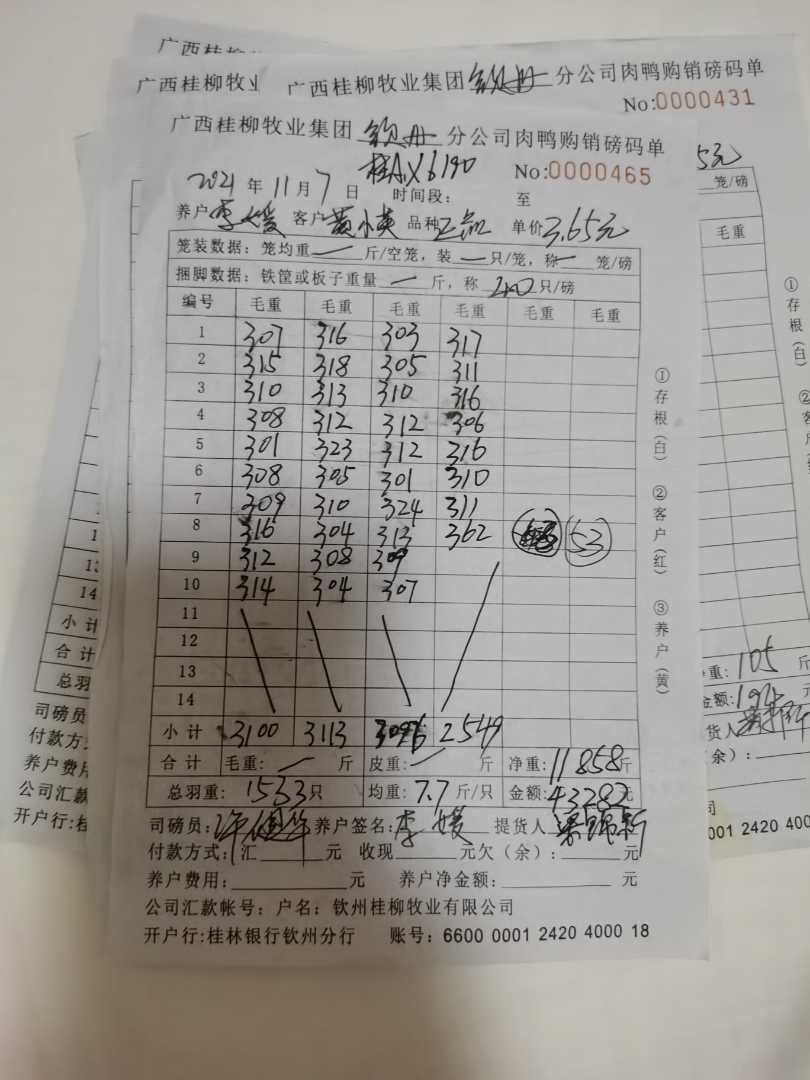 广西桂柳
广西桂柳牧业
广西桂柳牧业集团钦丹分公司肉鸭购销磅码单
No:0000431
广西桂柳牧业集团 钦丹 分公司肉鸭购销磅码单
桂AX6190
No:0000465
2021年11月7日 时间段: 至
养户李媛 客户黄小英 品种正品 单价3.65元
笼装数据: 笼均重一斤/空笼, 装一只/笼, 称一笼/磅
捆脚数据: 铁筐或板子重量一斤, 称40只/磅
编号 毛重 毛重 毛重 毛重 毛重 毛重
1 307 316 303 317
2 315 318 305 311
3 310 313 310 316
4 308 312 312 306
5 301 323 312 316
6 308 305 301 310
7 309 310 324 311
8 316 304 313 362 53
9 312 308 309
10 314 304 307
11
12
13
14
小计 3100 3113 3096 2549
合计 毛重:一斤 皮重:一斤 净重:11858斤
总羽重: 1533只 均重:7.7斤/只 金额:43282元
司磅员: 养户签名:李媛 提货人
付款方式:汇 元 收现 元欠(余): 元
养户费用: 元 养户净金额: 元
公司汇款帐号: 户名: 钦州桂柳牧业有限公司
开户行:桂林银行钦州分行 账号: 6600 0001 2420 4000 18
①存根(白) ②客户(红) ③养户(黄)
5元
笼/磅
毛重
①存根(白) ②
重: 105 斤
金额:194元
货人
(余):
司
001 2420 400
14
小计
合计
总羽
司磅员
付款方
养户费用
公司汇款
开户行:桂